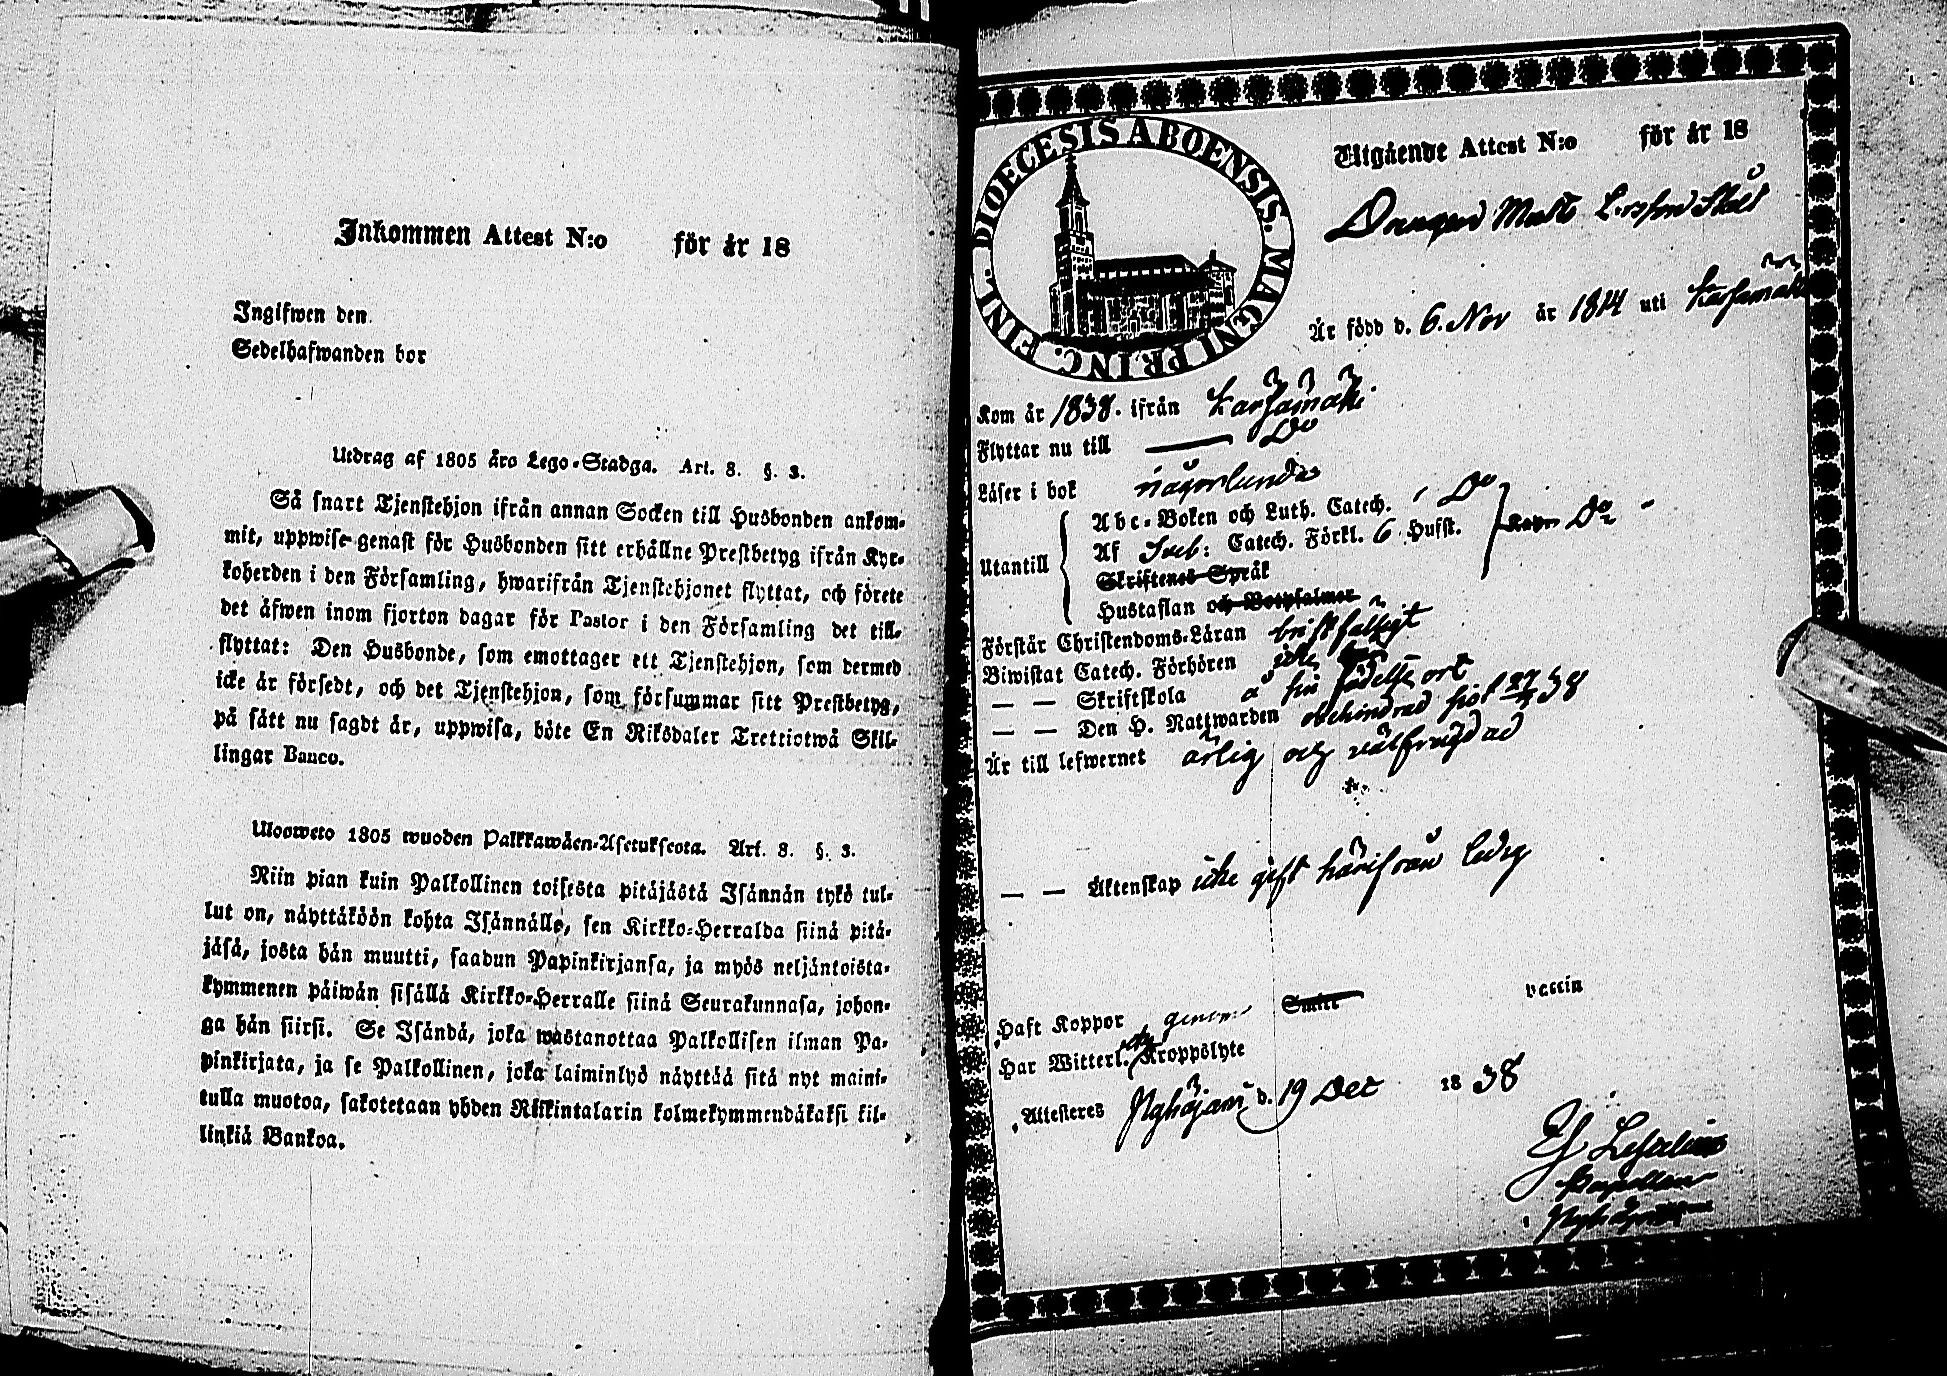 Inkommen Attest N:o för år 18
Inglfwen den
Sedelhafwanden bor
Utdrag af 1805 åra Lego-Stadga. Art. 8. §. 3.
Så snart Tjenstehjon ifrån annan Socken till Husbonden ankom-
mit, uppwise genast för Husbonden sitt erhållne Prestbetyg ifrån Kyr-
koherden i den Församling, hwarifrån Tjenstehjonet flyttat, och förete
det äfwen inom fjorton dagar för Pastor i den Församling det till-
flyttat: Den Husbonde, som emottager ett Tjenstehjon, som dermed
icke är försedt, och det Tjenstehjon, som försummar sitt Prestbetyg,
på sätt nu sagdt är, uppwisa, böte En Riksdaler Trettiotwå Skil-
lingar Banco.
Ulosweto 1805 wuoden Palkkawäen-Asetuksesta. Art. 8. §. 3.
Niin pian kuin Palkollinen toisesta pitäjästä Isännän tykö tul-
lut on, näyttäköön kohta Isännälle, sen Kirkko-Herralda siinä pitä-
jäsä, josta hän muutti, saadun Papinkirjansa, ja myös neljäntoista-
kymmenen päiwän sisällä Kirkko-Herralle siinä Seurakunnasa, johon-
ga hän siirsi. Se Isändä, joka wastanottaa Palkollisen ilman Pa-
pinkirjata, ja se Palkollinen, joka laiminlyö näyttää sitä nyt maini-
tulla muotoa, sakotetaan yhden Riikintalarin kolmekymmendäkaksi kil-
linkiä Bankoa.
DIOECESIS ABOENSIS. MAGNI PRINC. FINL.
Utgående Attest N:o för år 18
Drängen Matts
Är född d. 6. Nov år 1814 uti Kärsämäki
Kom år 1838. ifrån Kärsämäki
Flyttar nu till — Do
Läser i bok någorlunda
Abc-Boken och Luth. Catech. Do
Utantill Af Sveb: Catech. Förkl. 6 Hufst. Do
Skriftenes Språk
Hustaflan och Botpsalmer
Förstår Christendoms-Läran bristfälligt
Biwistat Catech. Förhören icke
— — Skriftskola å sin födelse ort
— — Den H. Nattwarden obehindrad 38
Är till lefwernet ärlig och välfrejdad
— — Äktenskap icke gift härifrån ledig
Haft Koppor genom Smitt vaccin
Har Witterl. Kroppslyte
Attesteres Pyhäjärvi d. 19 Dec 1838